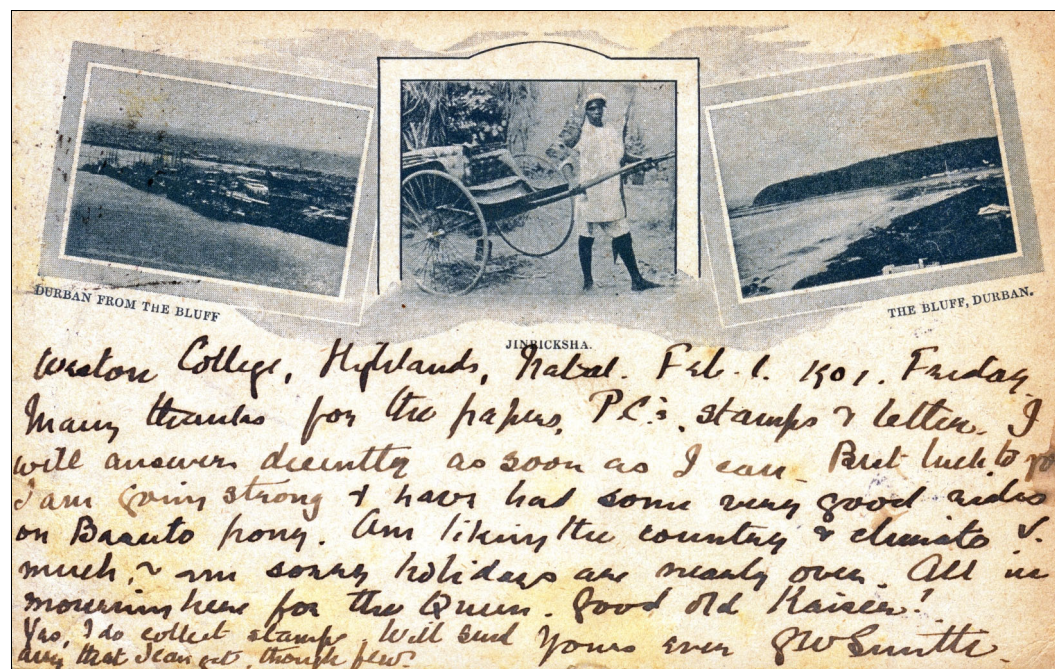 DURBAN FROM THE BLUFF
JINRICKSHA.
THE BLUFF, DURBAN.
Weston College, Highlands, Natal. Feb. 1. 1901. Friday.
Many thanks for the papers, P.C.'s, stamps & letter. I
will answer directly as soon as I can. Best luck to you
I am going strong & have had some very good rides
on Basuto pony. Am liking the country & climate v.
much, & am sorry holidays are nearly over. All in
mourning here for the Queen. Good old Kaiser!
Yes, I do collect stamps. Will send Yours ever JW Smith.
any that I can get, though few.